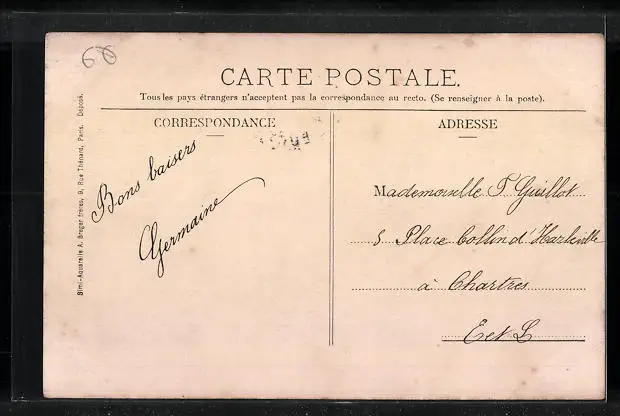 60
CARTE POSTALE.
Tous les pays étrangers n'acceptent pas la correspondance au recto. (Se renseigner à la poste).
CORRESPONDANCE
Bons baisers
Germaine
ADRESSE
Mademoiselle T. Guillot
5 Place Collin d'Harleville
à Chartres
E et L
Simi-Aquarelle A. Breger frères, 9, Rue Thénard, Paris. Déposé.